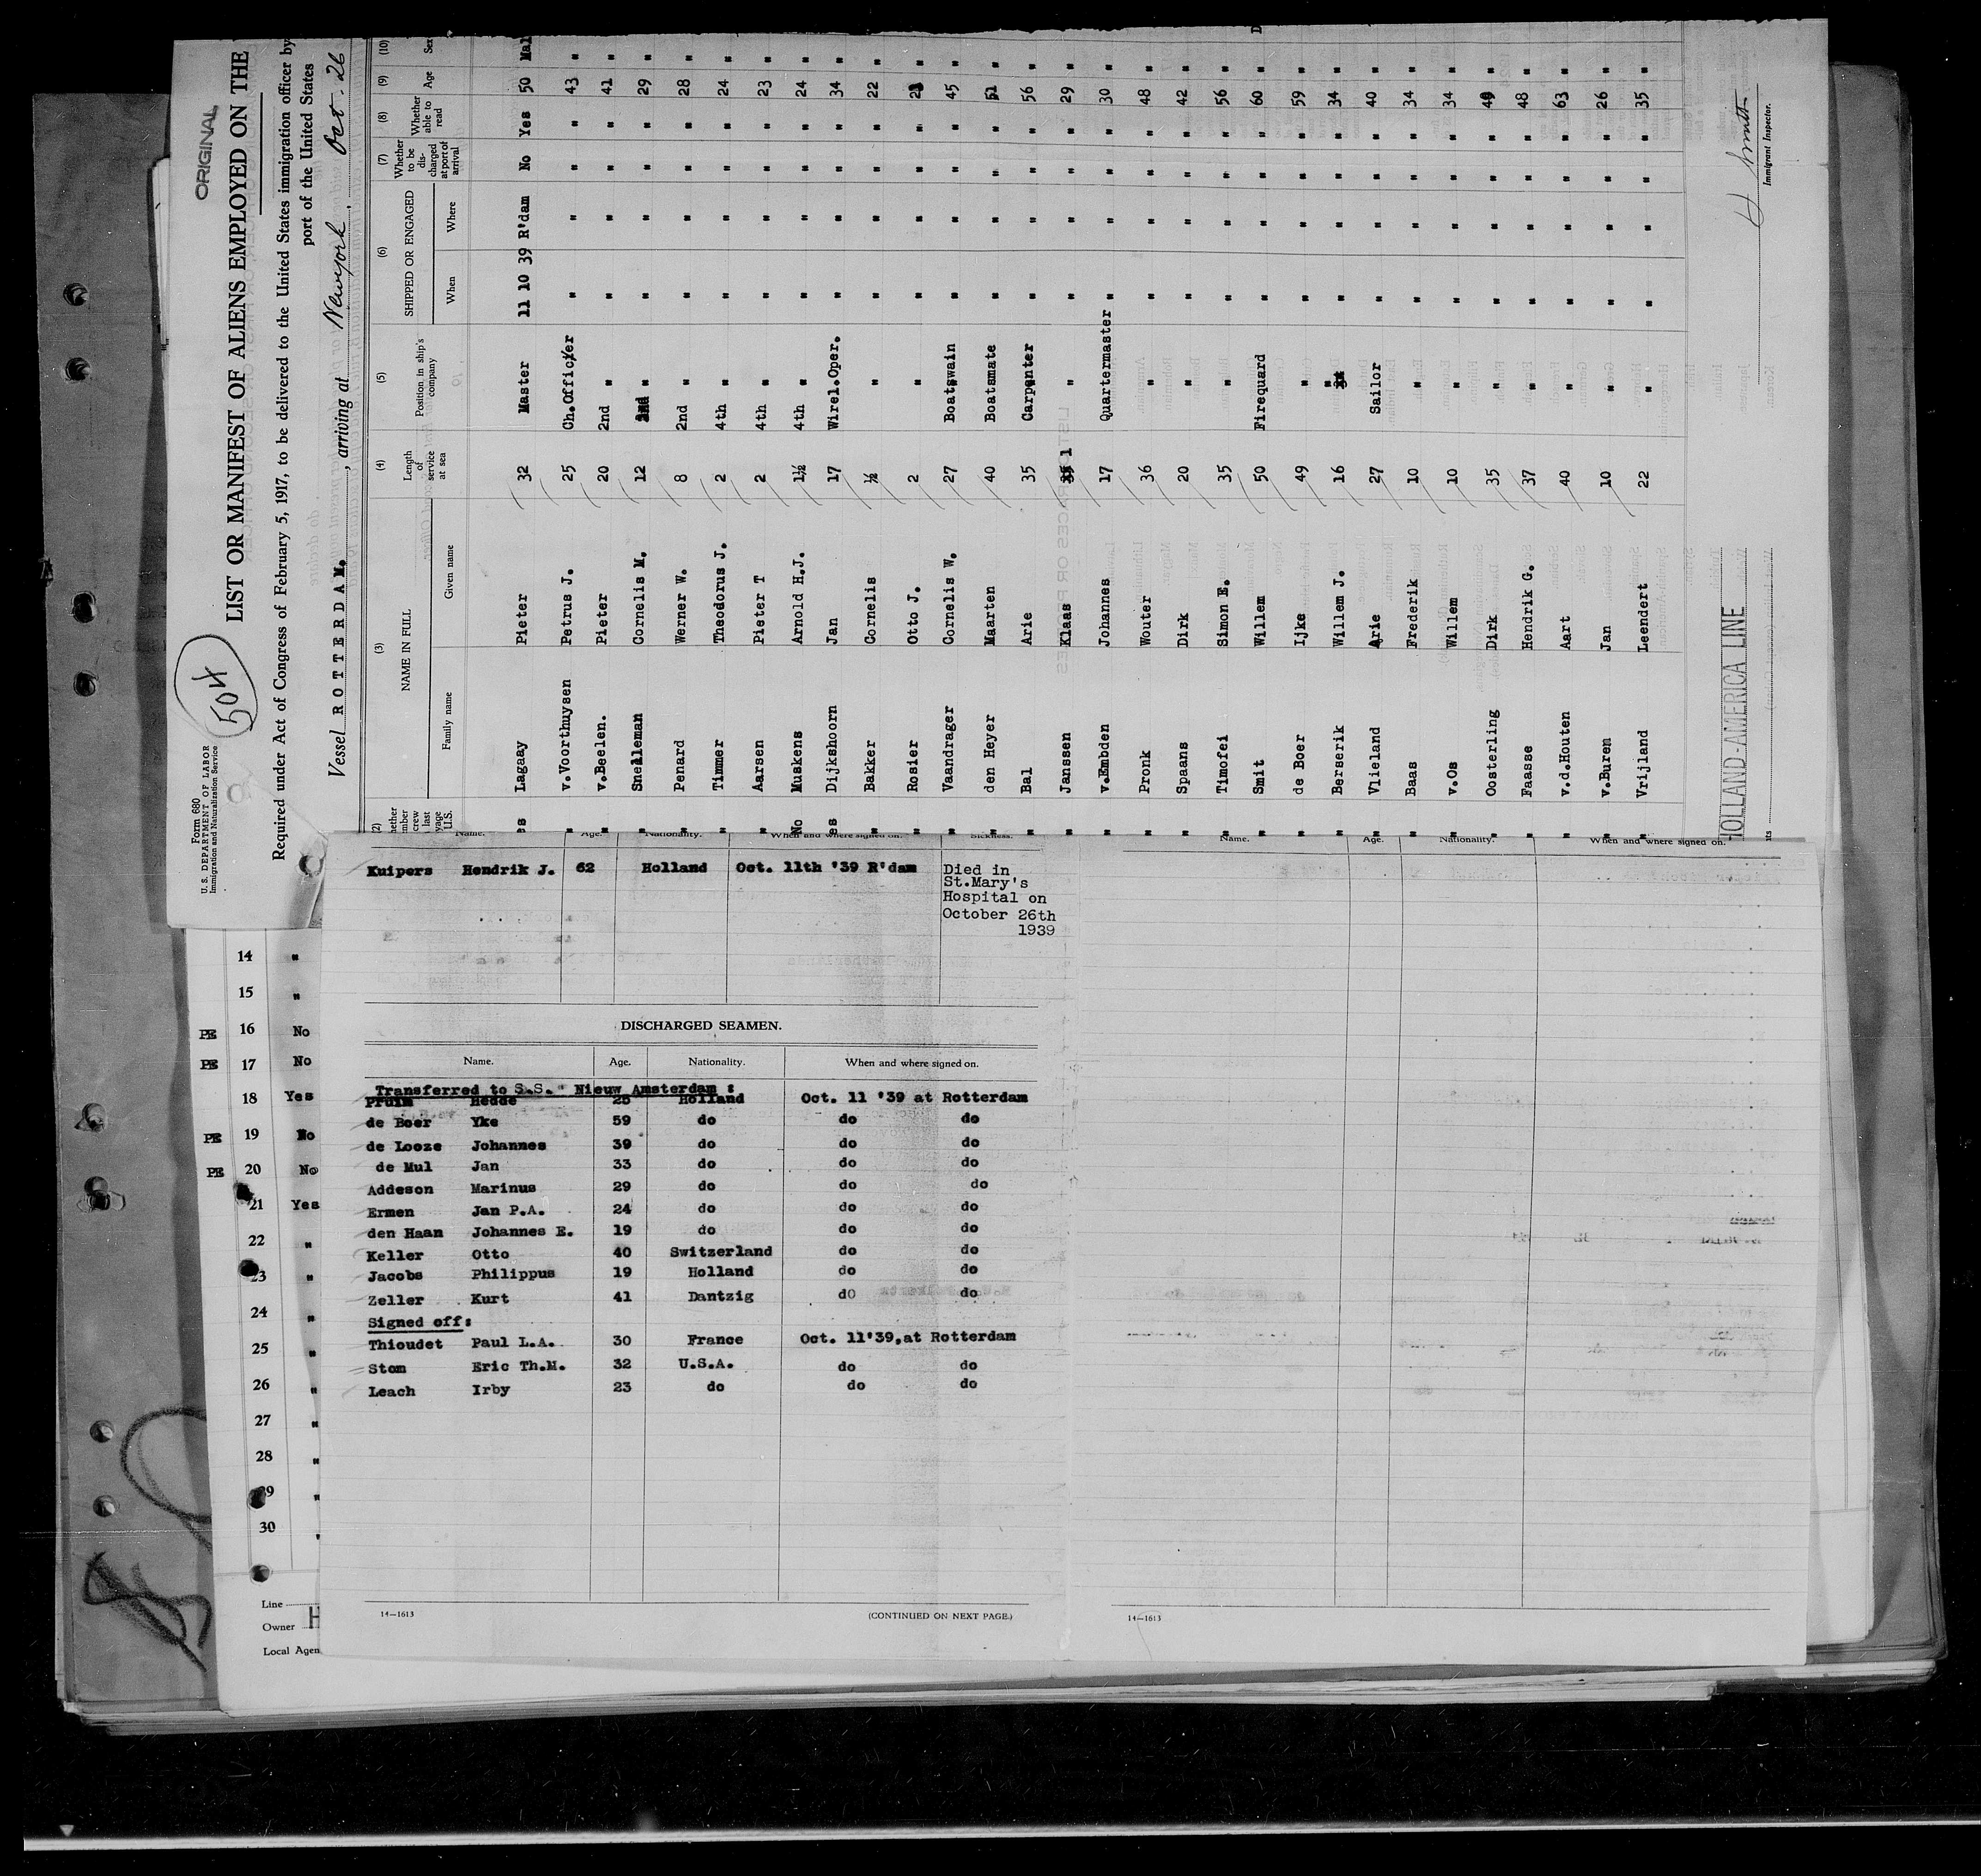 ORIGINAL
Form 680
U. S. DEPARTMENT OF LABOR
Immigration and Naturalization Service
504
LIST OR MANIFEST OF ALIENS EMPLOYED ON THE
Required under Act of Congress of February 5, 1917, to be delivered to the United States immigration officer by
port of the United States
Vessel ROTTERDAM., arriving at Newyork, Oct. 26
(3) (4) (5) (6) (7) (8) (9) (10)
NAME IN FULL Length of service at sea Position in ship's company SHIPPED OR ENGAGED Whether to be discharged at port of arrival Whether able to read Age Sex
Family name Given name When Where
Lagaay Pieter 32 Master 11 10 39 R'dam No Yes 50 Mal
v.Voorthuysen Petrus J. 25 Ch.Officer " " " " 43 "
v.Beelen. Pieter 20 2nd " " " " " 41 "
Snelleman Cornelis M. 12 " " " " " 29 "
Penard Werner W. 8 2nd " " " " " 28 "
Timmer Theodorus J. 2 4th " " " " " 24 "
Aarsen Pieter T 2 4th " " " " " 23 "
No Muskens Arnold H.J. 1½ 4th " " " " " 24 "
es Dijkshoorn Jan 17 Wirel.Oper. " " " " 34 "
" Bakker Cornelis ½ " " " " " 22 "
" Rosier Otto J. 2 " " " " " "
" Vaandrager Cornelis W. 27 Boatswain " " " " 45 "
" den Heyer Maarten 40 Boatsmate " " " " 51 "
" Bal Arie 35 Carpenter " " " " 56 "
" Janssen Klaas 1 " " " " " 29 "
" v.Embden Johannes 17 Quartermaster " " " " 30 "
" Pronk Wouter 36 " " " " " 48 "
" Spaans Dirk 20 " " " " " 42 "
" Timofei Simon E. 35 " " " " " 56 "
" Smit Willem 50 Firequard " " " " 60 "
" de Boer Ijke 49 " " " " " 59 "
" Berserik Willem J. 16 " " " " " 34 "
" Vlieland Arie 27 Sailor " " " " 40 "
" Baas Frederik 10 " " " " " 34 "
" v.Os Willem 10 " " " " " 34 "
" Oosterling Dirk 35 " " " " " 49 "
" Faasse Hendrik G. 37 " " " " " 48 "
" v.d.Houten Aart 40 " " " " " 63 "
" v.Burem Jan 10 " " " " " 26 "
" Vrijland Leendert 22 " " " " " 35 "
HOLLAND-AMERICA LINE
Immigrant Inspector.
Name. Age. Nationality. When and where signed on. Sickness.
Kuipers Hendrik J. 62 Holland Oct. 11th '39 R'dam Died in
St.Mary's
Hospital on
October 26th
1939
DISCHARGED SEAMEN.
Name. Age. Nationality. When and where signed on.
Transferred to S.S. " Nieuw Amsterdam :
Pruim Hedde 25 Holland Oct. 11 '39 at Rotterdam
de Boer Yke 59 do do do
de Looze Johannes 39 do do do
de Mul Jan 33 do do do
Addeson Marinus 29 do do do
Ermen Jan P.A. 24 do do do
den Haan Johannes E. 19 do do do
Keller Otto 40 Switzerland do do
Jacobs Philippus 19 Holland do do
Zeller Kurt 41 Dantzig do do
Signed off:
Thioudet Paul L.A. 30 France Oct. 11'39,at Rotterdam
Stom Eric Th.M. 32 U.S.A. do do
Leach Irby 23 do do do
14—1613
(CONTINUED ON NEXT PAGE.)
Name. Age. Nationality. When and where signed on.
14—1613
14 "
15 "
PE 16 No
PE 17 No
18 Yes
PE 19 No
PE 20 No
21 Yes
22 "
23 "
24 "
25 "
26 "
27 "
28 "
29 "
30 "
Line
Owner H
Local Agen